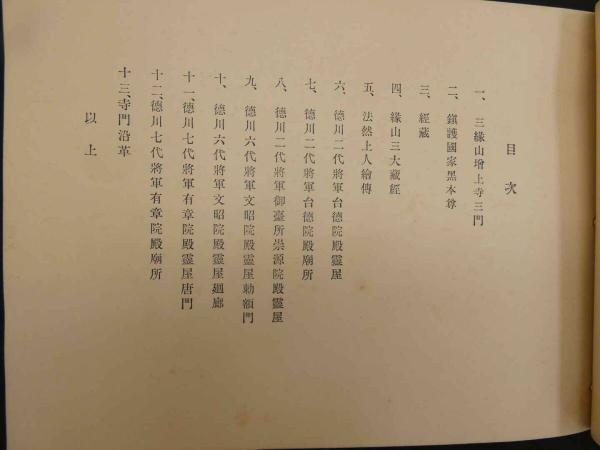 目次
一、三緣山增上寺三門
二、鎭護國家黑本尊
三、經藏
四、緣山三大藏經
五、法然上人繪傳
六、德川二代將軍台德院殿靈屋
七、德川二代將軍台德院殿廟所
八、德川二代將軍御臺所崇源院殿靈屋
九、德川六代將軍文昭院殿靈屋勅額門
十、德川六代將軍文昭院殿靈屋廻廊
十一、德川七代將軍有章院殿靈屋唐門
十二、德川七代將軍有章院殿廟所
十三、寺門沿革
以上